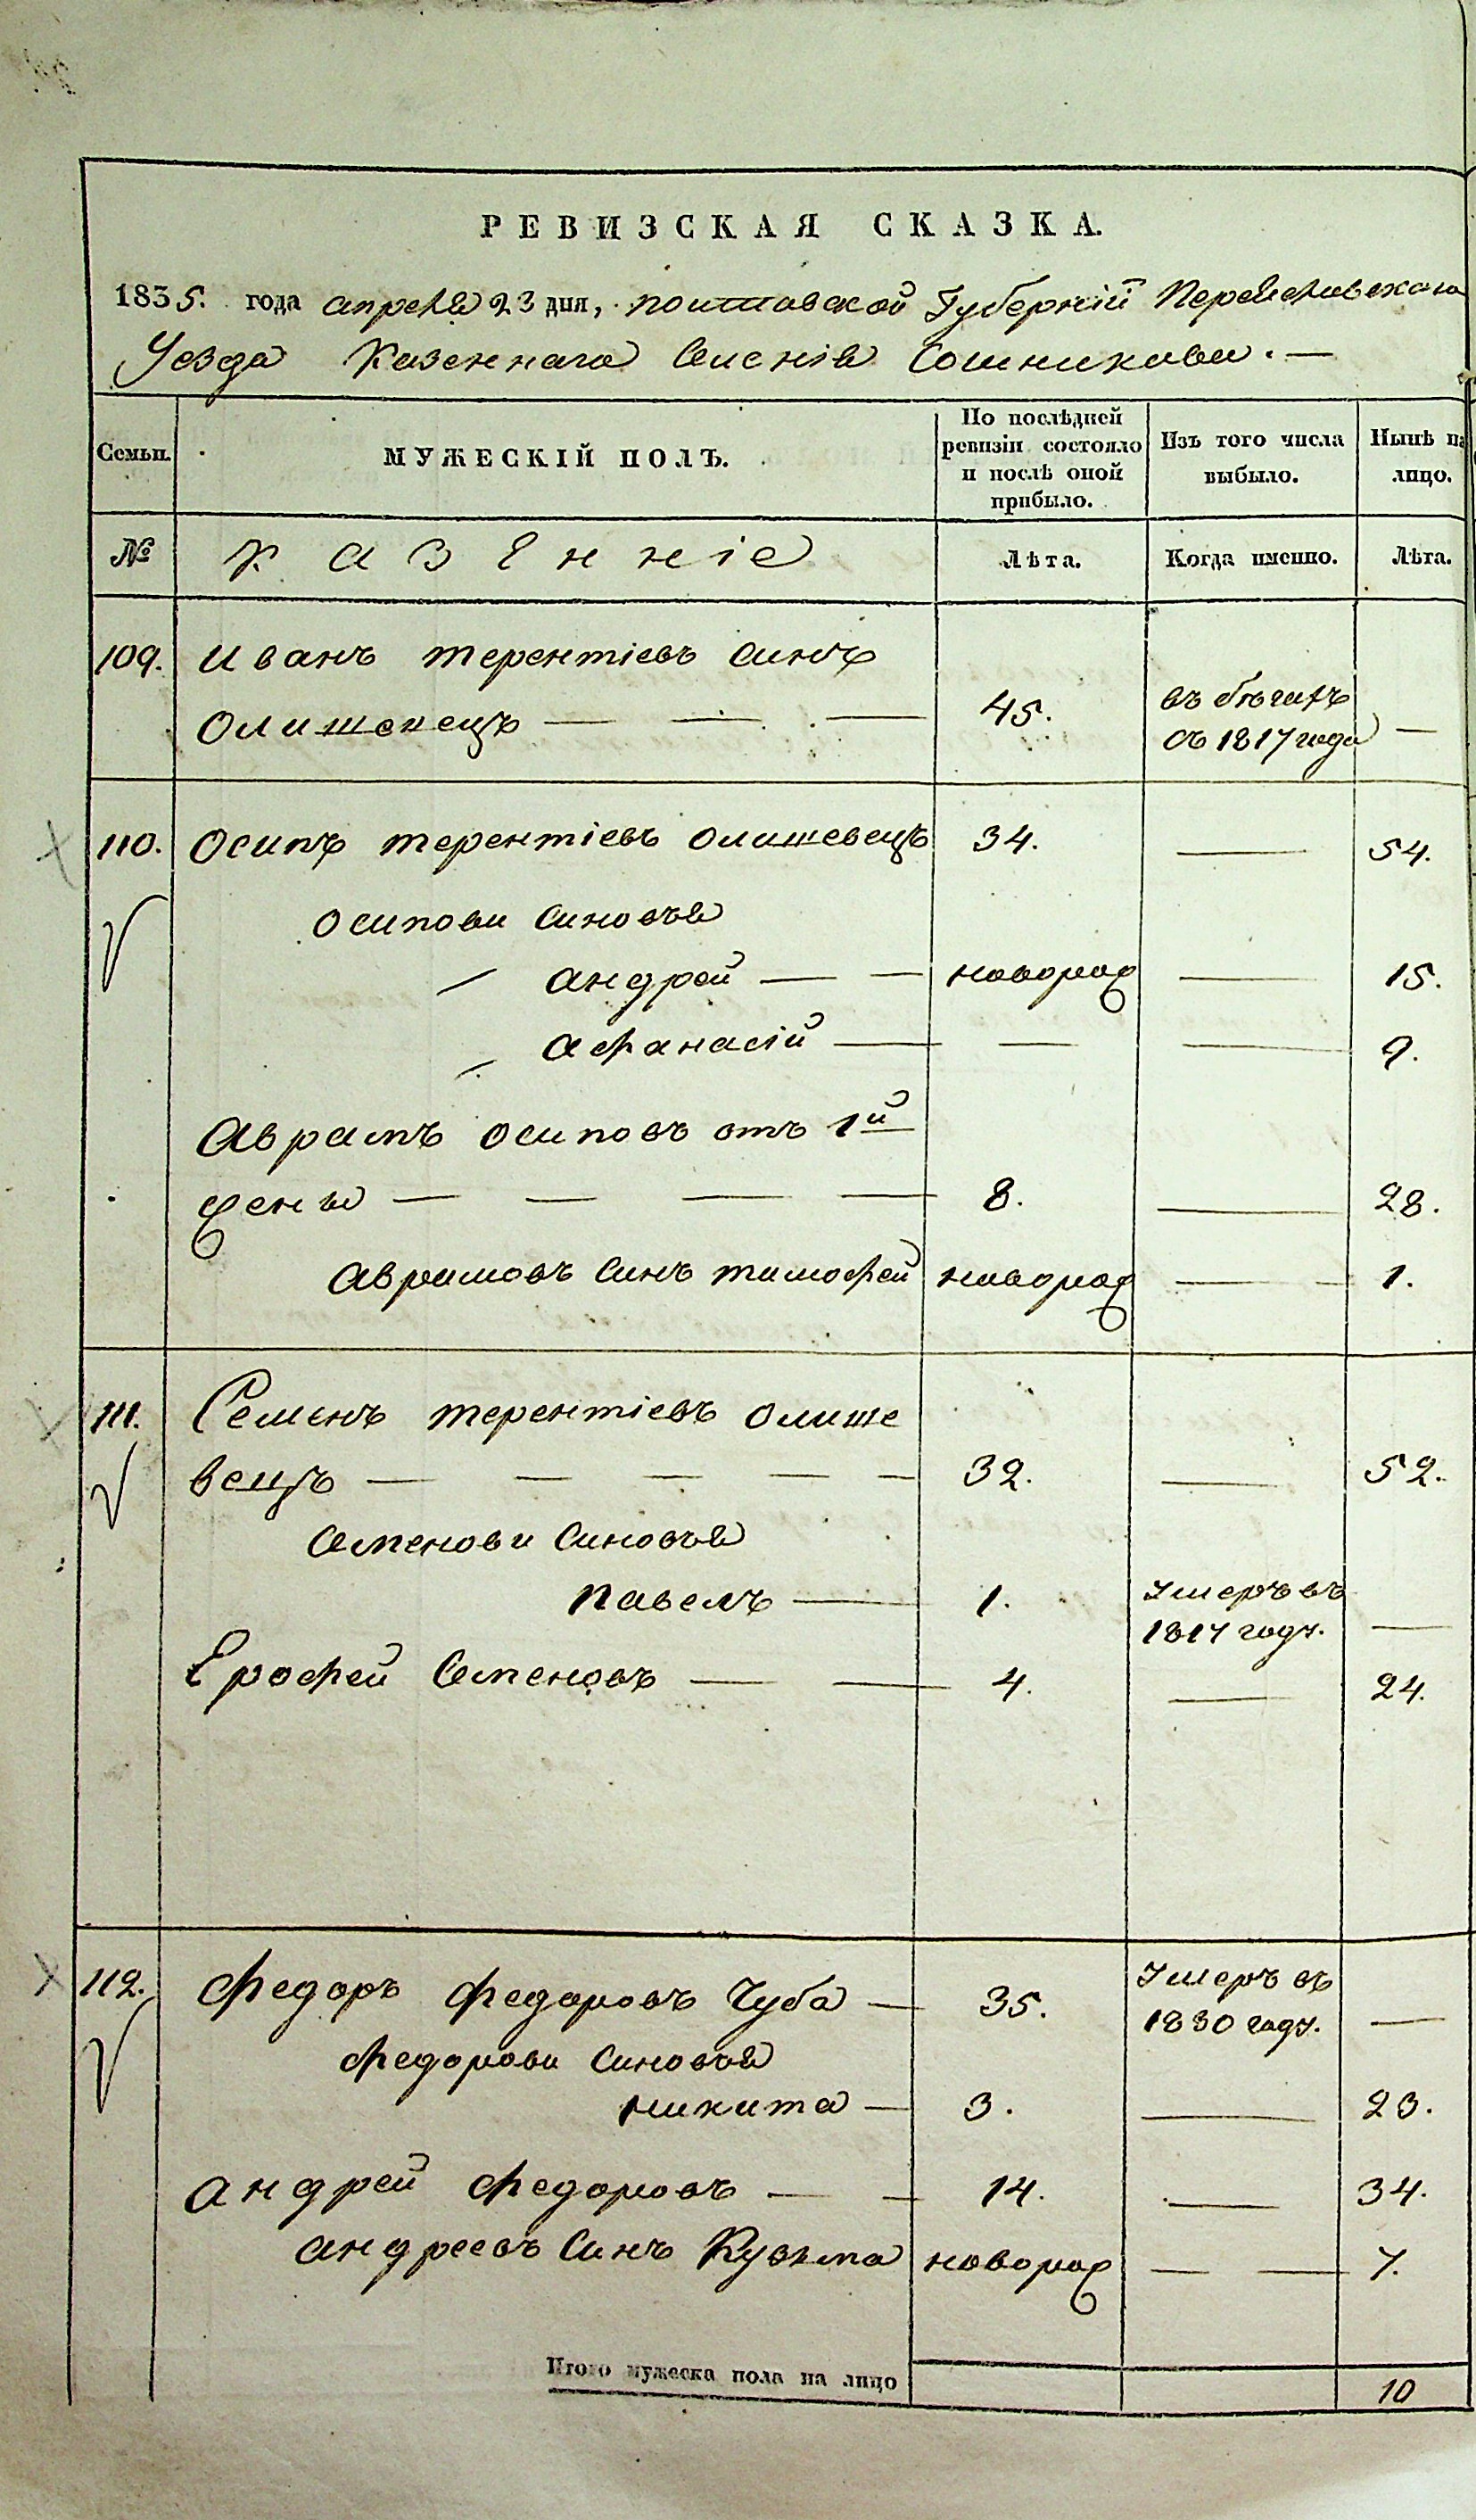 РЕВИЗСКАЯ СКАЗКА.
1835. года апреля 23 дня, полтавской Губернїи Переяславскаго
Уезда Казеннаго Селенїя Сошникова. —
Семьи. МУЖЕСКІЙ ПОЛЪ. По послѣдней ревизіи состояло и послѣ оной прибыло. Изъ того числа выбыло. Нынѣ на лицо.
№ Казеннїе Лѣта. Когда именно. Лѣта.
109. Иванъ терентїевъ Синъ
Олишевецъ — — — 45. въ бѣгахъ съ 1817 года —
110. Осипъ терентїевъ Олишевецъ 34. — 54.
Осипови Синовья
Андрей — — новорож — 15.
Афанасїй — — — 9.
Аврамъ Осиповъ отъ 1й
жены — — — — 8. — 28.
Аврамовъ Синъ тимофей новорож — — 1.
111. Семенъ терентїевъ Олише
вецъ — — — — — 32. — 52.
Семенови Синовья
Павелъ — 1. Умеръ въ 1817 году. —
Ерофей Семеновъ — — 4. — 24.
112. Федоръ Федоровъ Чуба — 35. Умеръ въ 1830 году. —
Федорови Синовья
Никита — 3. — 23.
Андрей Федоровъ — — 14. — 34.
Андреевъ Синъ Кузьма новорож — — 7.
Итого мужеска пола на лицо 10